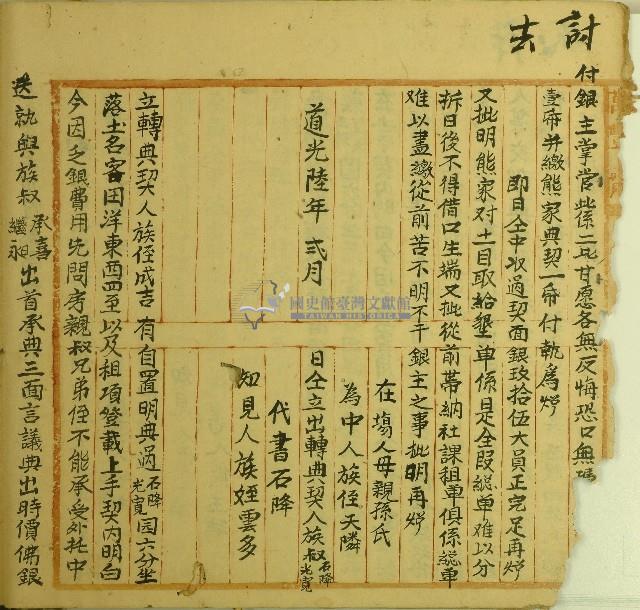 討去
付銀主掌管此係二比甘愿各無反悔恐口無憑
壹帋并繳熊家典契一帋付執為炤
即日仝中收過契面銀玖拾伍大員正完足再炤
又批明熊家对土目取給墾单係是仝段総单难以分
拆日後不得借口生端又批從前帶納社課租单俱係総单
难以盡繳從前苦不明不干銀主之事批明再炤
在塲人母親孫氏
為中人族侄天隣
道光陸年弍月
日仝立出轉典契人族叔石降光寬
代書石降
知見人族姪雲多
立轉典契人族侄成吉有自置明典過石降光寬园六分坐
落土名客田洋東西四至以及租項登載上手契內明白
今因乏銀費用先問房親叔兄弟侄不能承受外托中
送執與族叔承喜繼祖出首承典三面言議典出時價佛銀
國史館臺灣文獻館
TAIWAN HISTORICA